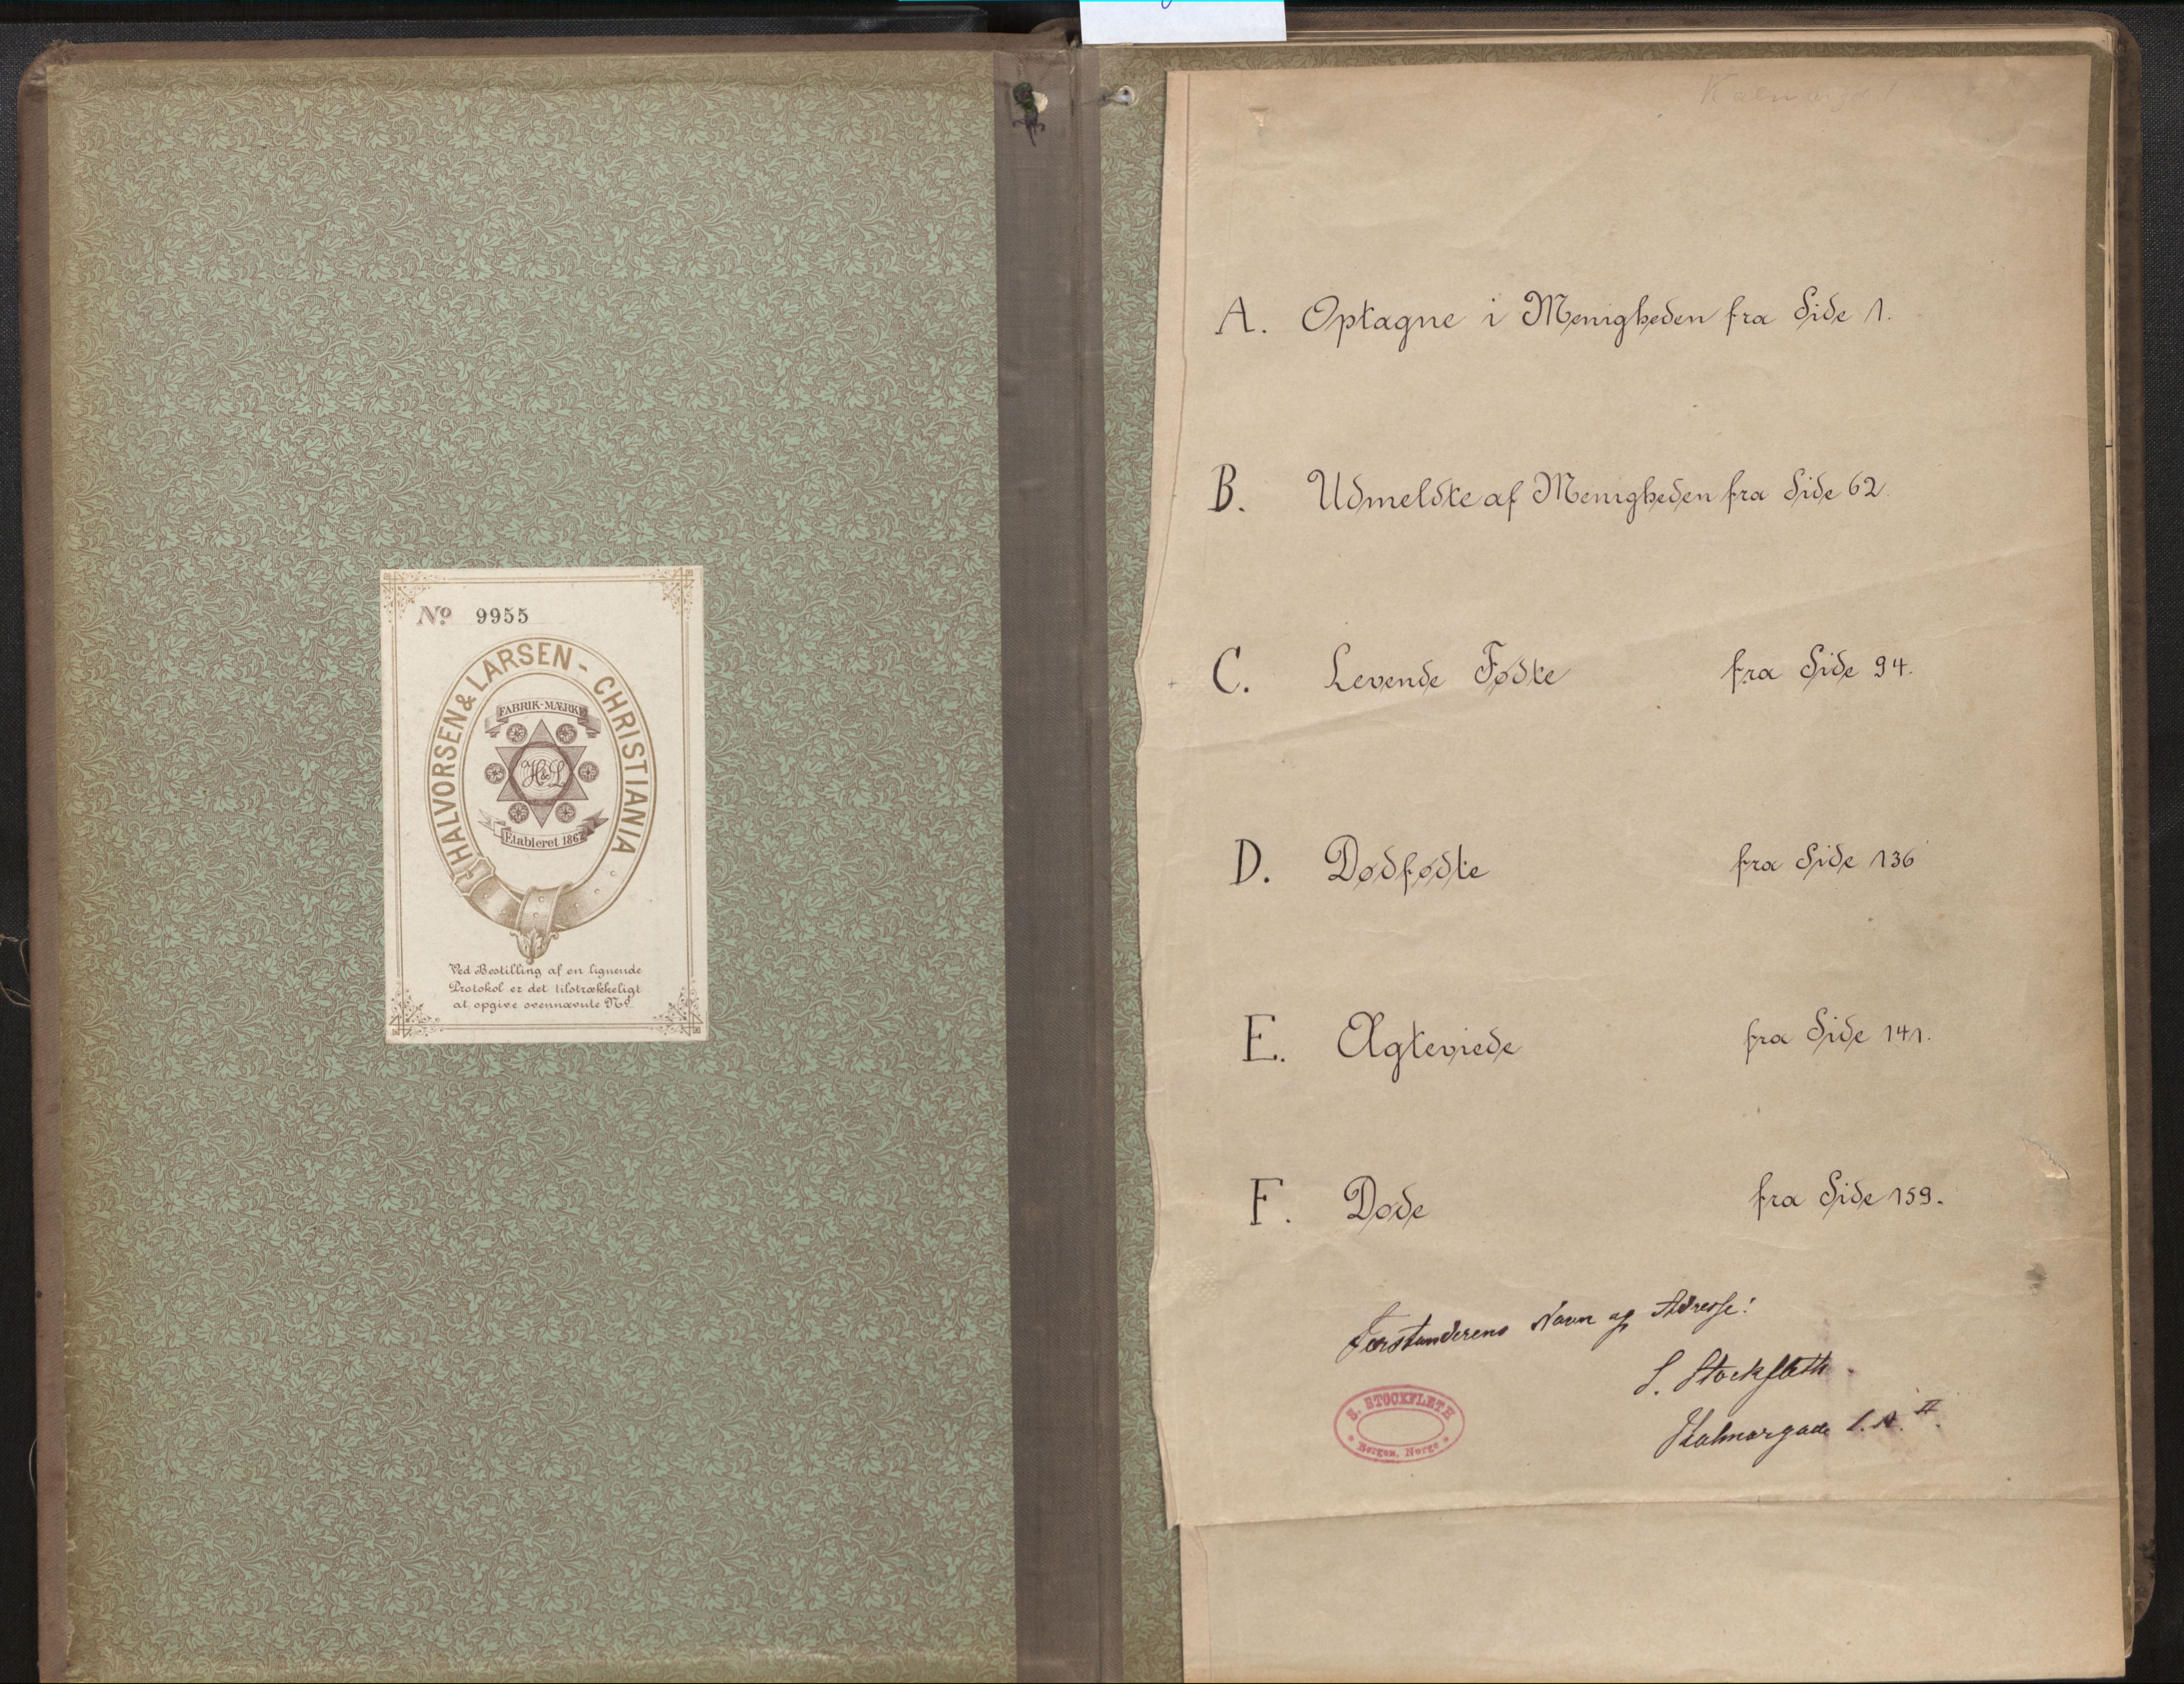 Nº 9955
HALVORSEN & LARSEN - CHRISTIANIA
FABRIK-MÆRKE
H&L
Etableret 1867
Ved Bestilling af en lignende
Protokol er det tilstrækkeligt
at opgive ovennævnte Nº
A. Optagne i Menigheden fra Side 1.
B. Udmeldte af Menigheden fra Side 62
C. Levende Fødte fra Side 94.
D. Dødfødte fra Side 136
E. Ægteviede fra Side 141.
F. Døde fra Side 159.
Forstanderens Navn og Adresse:
S. Stockfleth
Kalmargade 1. A. II.
S. STOCKFLETH
Bergen, Norge